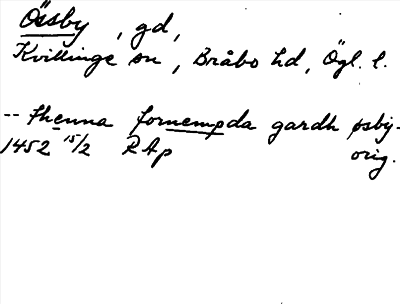 Össby, gd,
Kvillinge sn, Bråbo hd, Ögl. l.
-- thenna fornempda gardh øsby-
1452 15/2 RAp orig.